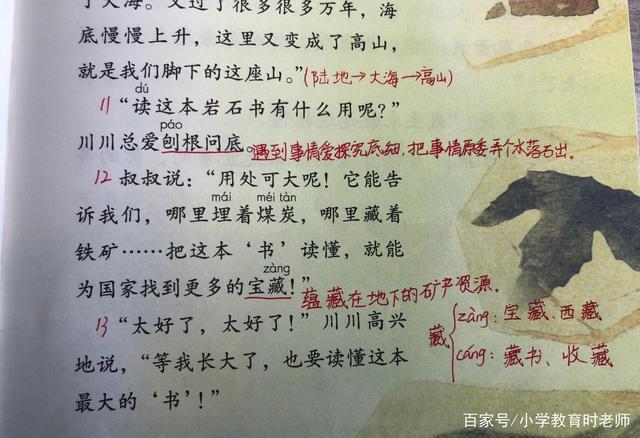 了大海。又过了很多很多万年，海
底慢慢上升，这里又变成了高山，
就是我们脚下的这座山。”(陆地→大海→高山)
dú
11 “读这本岩石书有什么用呢？”
páo
川川总爱刨根问底。遇到事情爱探究底细，把事情原委弄个水落石出。
12 叔叔说：“用处可大呢！它能告
mái méi tàn
诉我们，哪里埋着煤炭，哪里藏着
铁矿……把这本‘书’读懂，就能
zàng
为国家找到更多的宝藏！”蕴藏在地下的矿产资源。
13 “太好了，太好了！”川川高兴
地说，“等我长大了，也要读懂这本
最大的‘书’！”
藏
zàng：宝藏、西藏
cáng：藏书、收藏
百家号/小学教育时老师